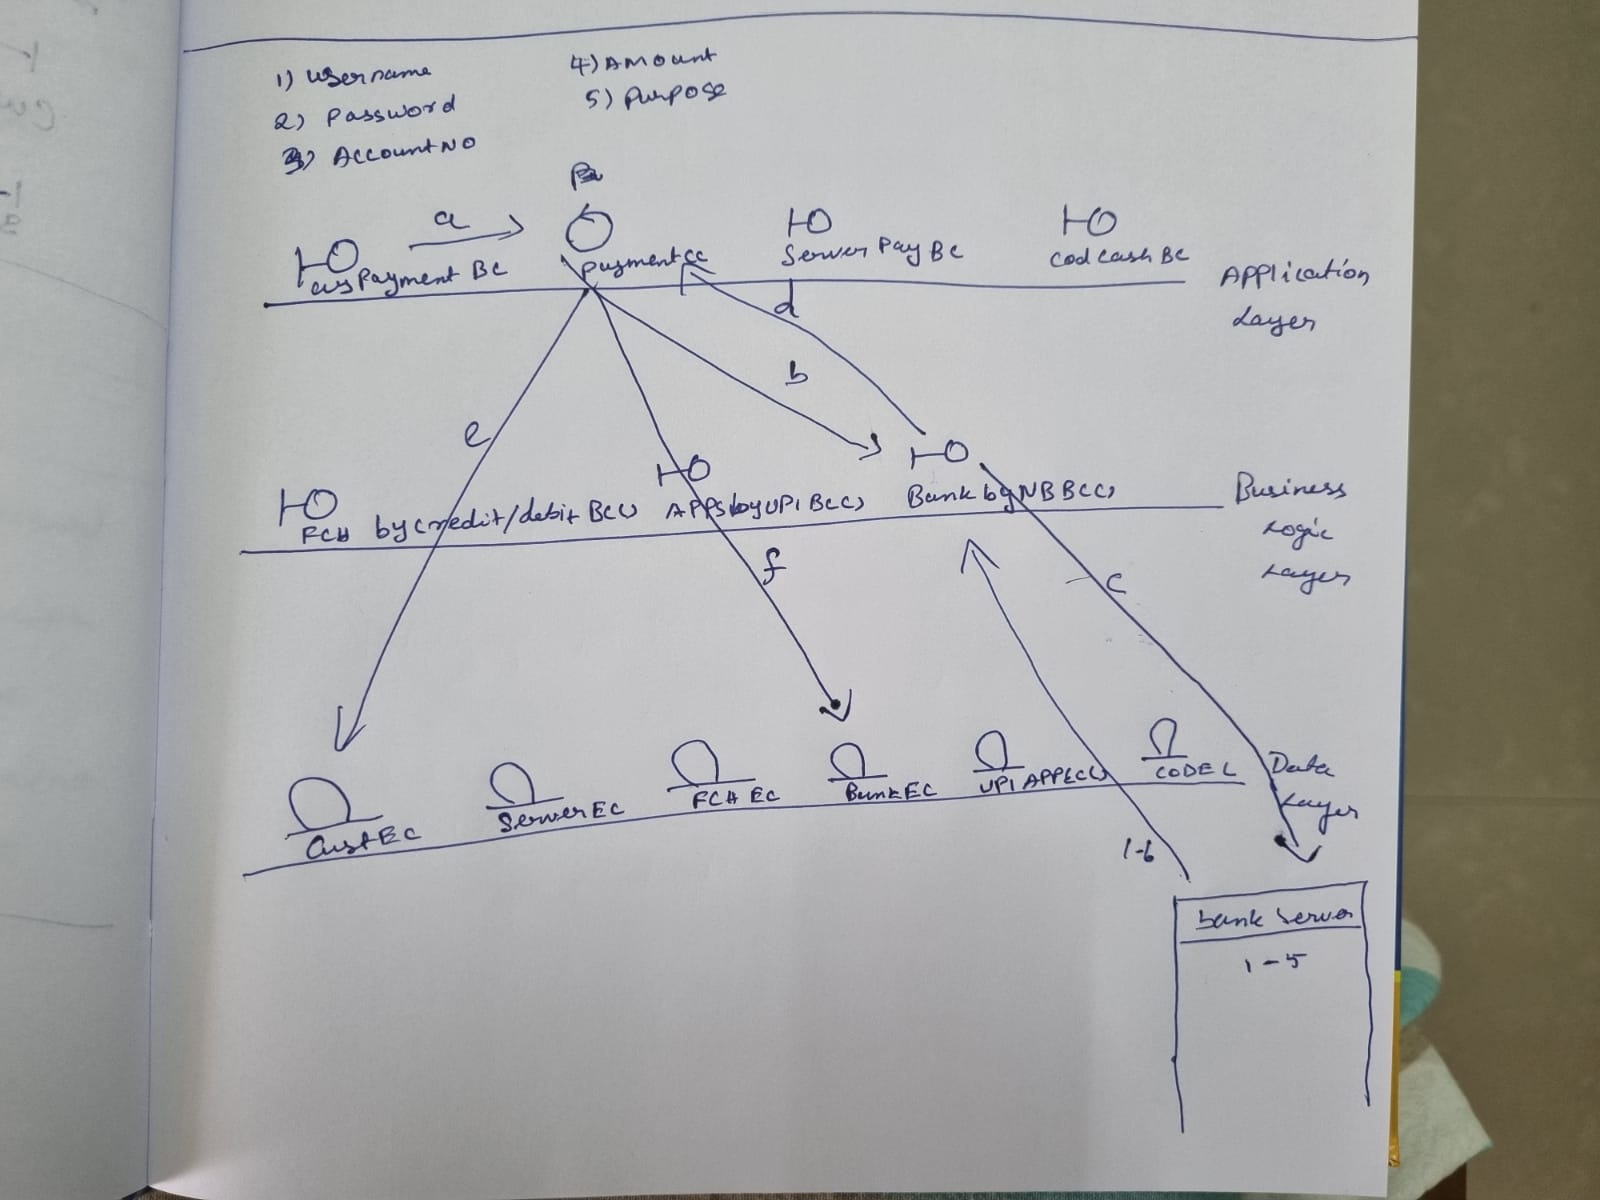 1) Username
2) Password
3) Account NO
4) Amount
5) Purpose
a
Payment BC
Payment CC
Server Pay BC
cod cash BC
Application
Layer
d
b
e
FCH by credit/debit BC()
APPS by UPI BC()
Bank by NB BC()
Business
Logic
Layer
f
c
Cust EC
Server EC
FCH EC
Bank EC
UPI APP EC()
COD EC
Data
Layer
1-6
bank server
1-5